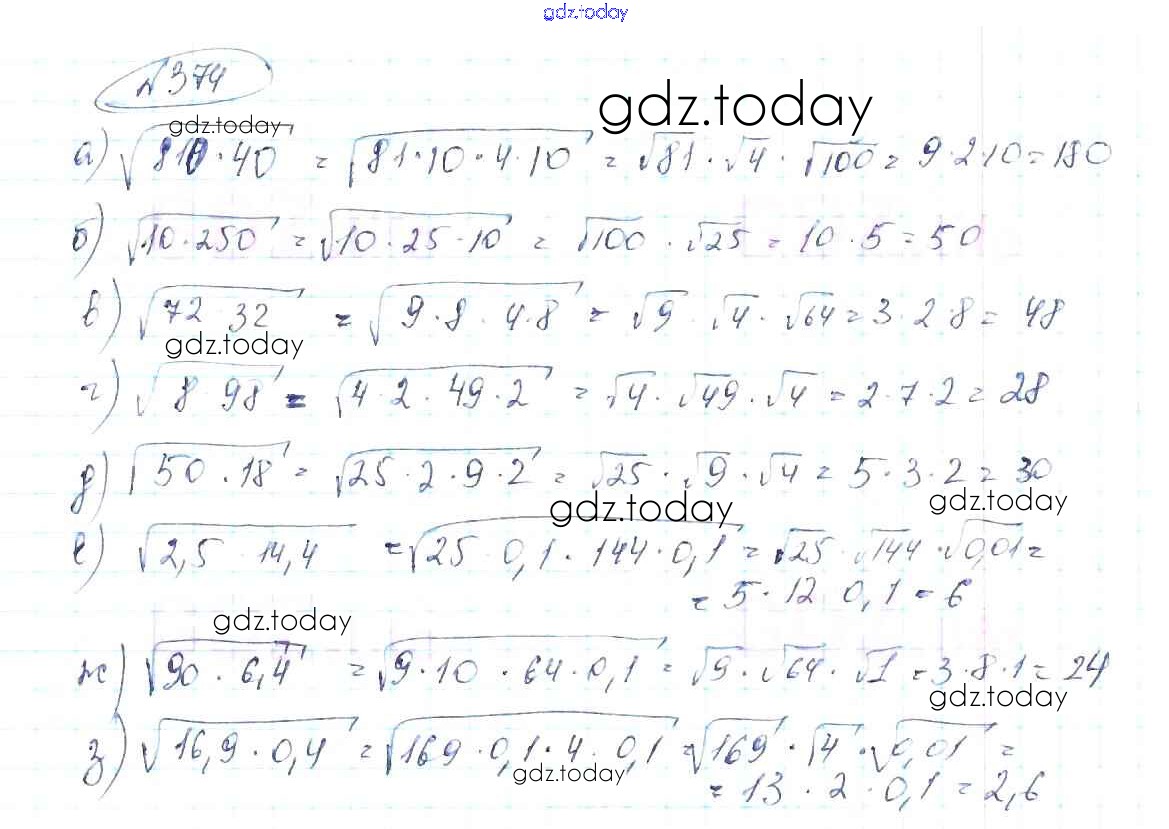 gdz.today
№374
gdz.today
gdz.today
а) √810·40 = √81·10·4·10 = √81·√4·√100 = 9·2·10=180
б) √10·250 = √10·25·10 = √100·√25 = 10·5=50
в) √72 32 = √9·8·4·8 = √9·√4·√64=3·2·8=48
gdz.today
г) √8 98 = √4·2·49·2 = √4·√49·√4=2·7·2=28
д) √50·18 = √25·2·9·2 = √25·√9·√4=5·3·2=30
gdz.today
gdz.today
е) √2,5 14,4 =√25·0,1·144·0,1=√25·√144·√0,01=
= 5·12 0,1=6
gdz.today
ж) √90·6,4 =√9·10·64·0,1=√9·√64·√1=3·8·1=24
gdz.today
з) √16,9·0,4 =√169·0,1·4·0,1=√169·√4·√0,01 =
gdz.today
= 13·2·0,1=2,6